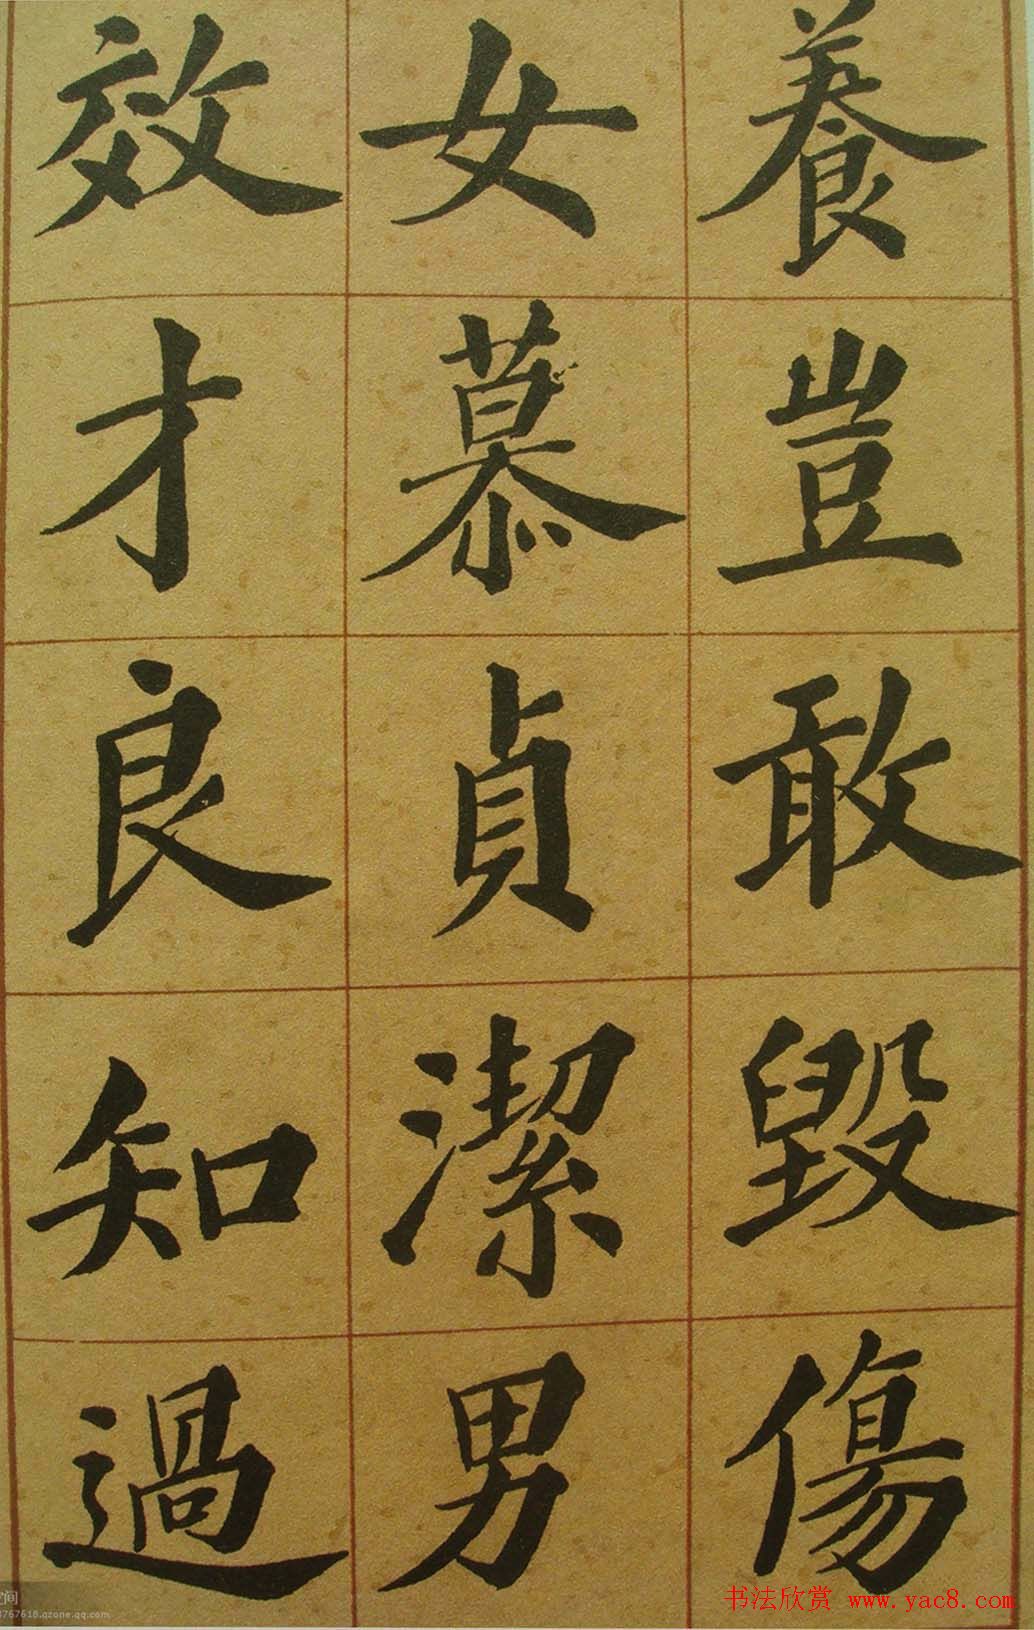 養豈敢毀傷
女慕貞潔男
效才良知過
书法欣赏 www.yac8.com
空间
8767618.qzone.qq.com